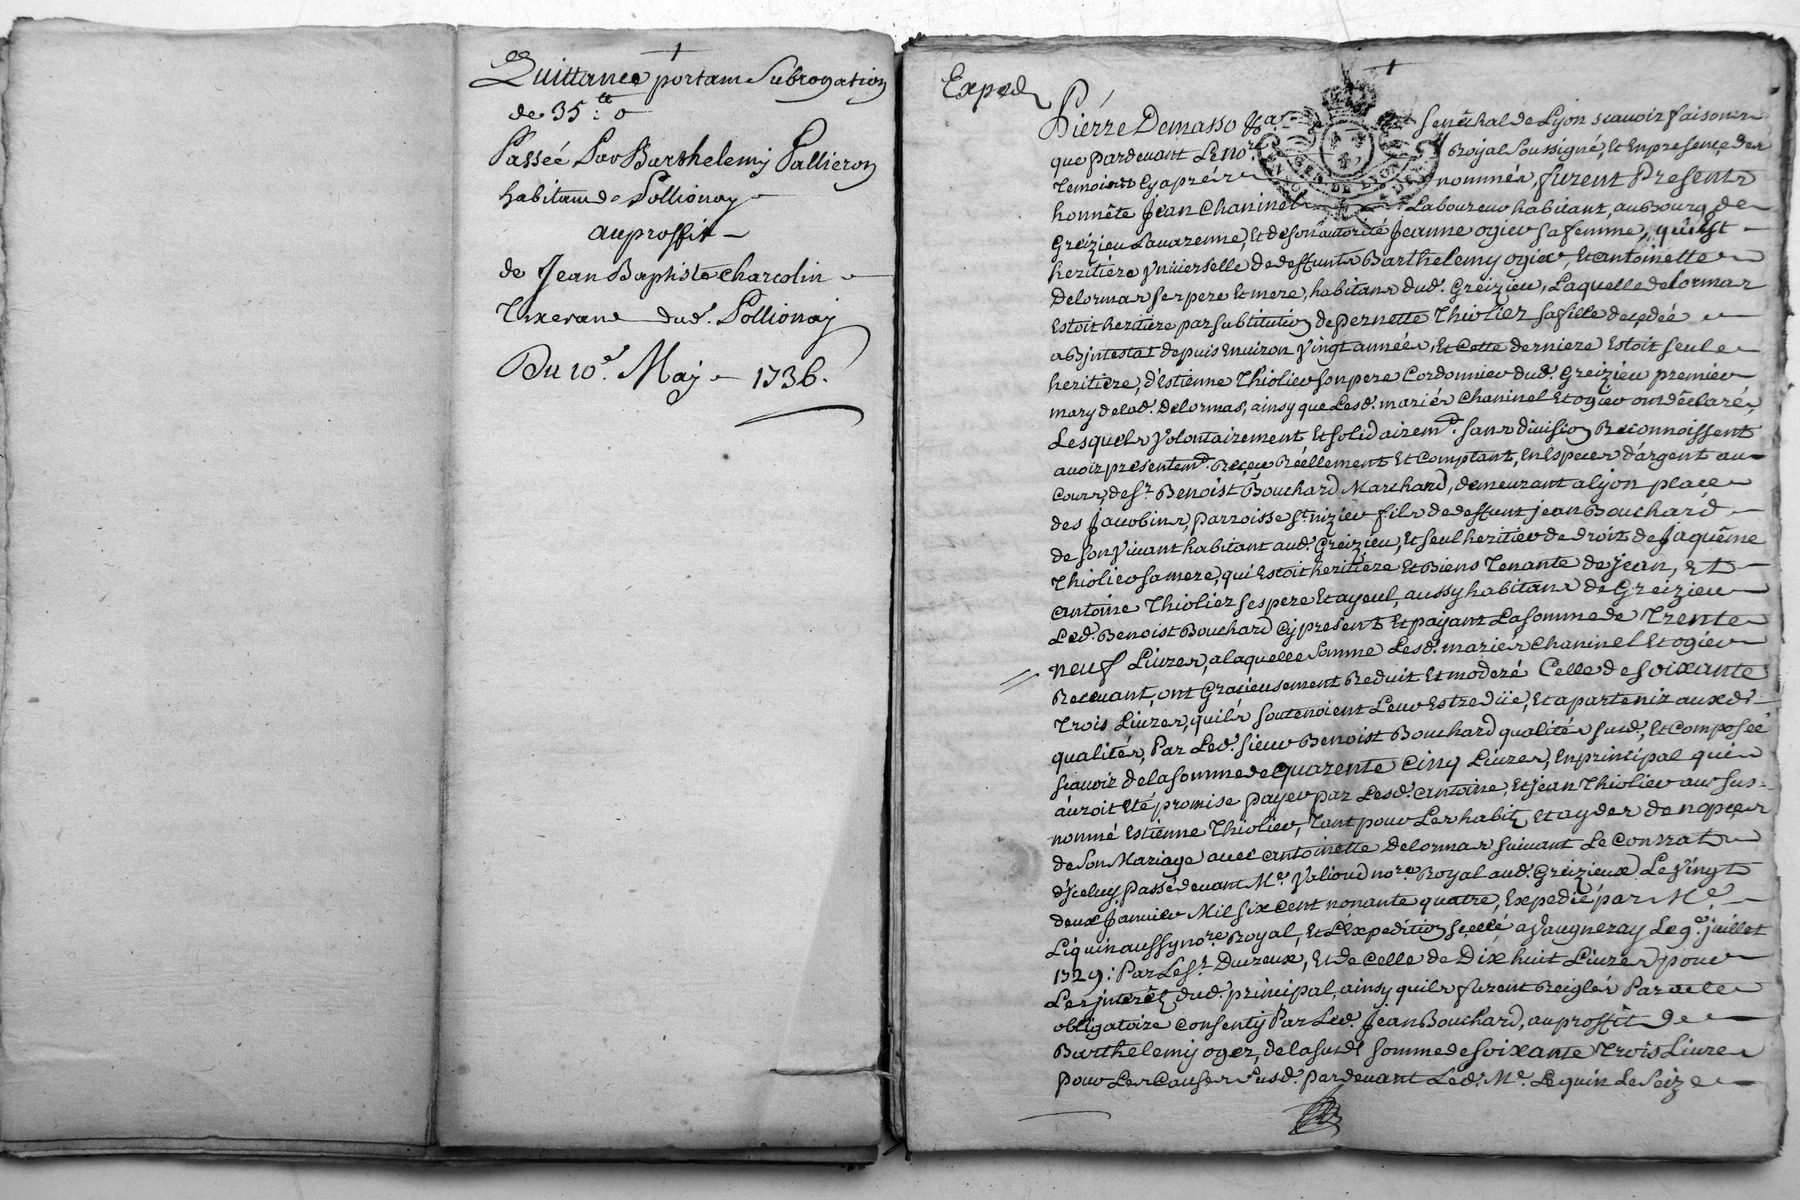 Quittance portant Subrogation
de 35 ₶: 0
Passée Par Barthelemy Pallieron
habitant de Pollionay
au proffit
de Jean Baptiste Charcolin
Tixerand dud. Pollionay
Du 10e. May 1736.
Exped
Pierre Demasso &a. Senêchal de Lyon scavoir faisons
que pardevant Le nore. Royal Soussigné, Et En presence des
Temoins Cy aprés nommés, furent Presents
honnête Jean Chaninel Laboureur habitant, au Bourg de
Greizieu Lavarenne, Et de son autorité Jeanne ogier sa femme, qui Est
heritiére Vniverselle de deffunts Barthelemy ogier, Et antoinette
Delormas ses pere Et mere, habitans dud. Greizieu, Laquelle delormas
Estoit heritiere par substitution de pernette Thiolier sa fille decedée
abjntestat depuis Environ Vingt années, Et Cette derniere Estoit seule
heritiere, d'Estienne Thiolier son pere Cordonnier dud. Greizieu premier
mary de lad. Delormas, ainsy que Lesd. mariés Chaninel Et ogier ont déclarés,
Lesquels Volontairement, Et solidairemt. sans division Reconnoissent
avoir presentemt. Reçeu Réellement Et Comptant, En Especes d'argent au
Cours, de sr. Benoist Bouchard Marchand, demeurant a lyon place
des Jacobins, parroisse st. nizier fils de deffunt jean Bouchard
de son Vivant habitant aud. Greizieu, Et seul heritier de droit de Jaquême
Thiolier sa mere, qui Estoit heritiere Et Biens Tenante de jean, Et
antoine Thiolier ses pere Et ayeul, aussy habitans de Greizieu
Led. Benoist Bouchard Cy present Et payant La somme de Trente
neuf Livres, a laquelle somme Lesd. mariés Chaninel Et ogier
Recevant, ont Gracieusement Reduit Et moderé Celle de soixante
Trois Livres, quils soutenoient Leur Estre düe, Et apartenir auxd.
qualités, Par Led. sieur Benoist Bouchard qualités susd., Et Composée
scavoir de la somme de Quarente Cinq Livres, En principal qui
auroit Eté promise payer par Lesd. antoine, Et jean Thiolier au sus-
nommé Estienne Thiolier, Tant pour Les habits Et aydes de nopces
de son Mariage avec antoinette delormas suivant Le Contrat
d'jceluy, passé devant Me. Valioud nore. Royal aud. Greizieux Le Vingt
deux Janvier Mil six cent nonante quatre, Expedié par Me.
Lequin aussy nore. Royal, Et L'Expedition scellé a Vaugneray Le 9e. juillet
1729: Par Le sr. Ducreux, Et de Celle de Dix huit Livres pour
Les jnterêts dud. principal, ainsy quils furent Reiglés Par acte
obligatoire Consenty Par Led. Jean Bouchard, au proffit de
Barthelemy ogier, de la susd. somme de soixante Trois Livres
pour Les Causes susd. pardevant Led. Me. Lequin Le seize